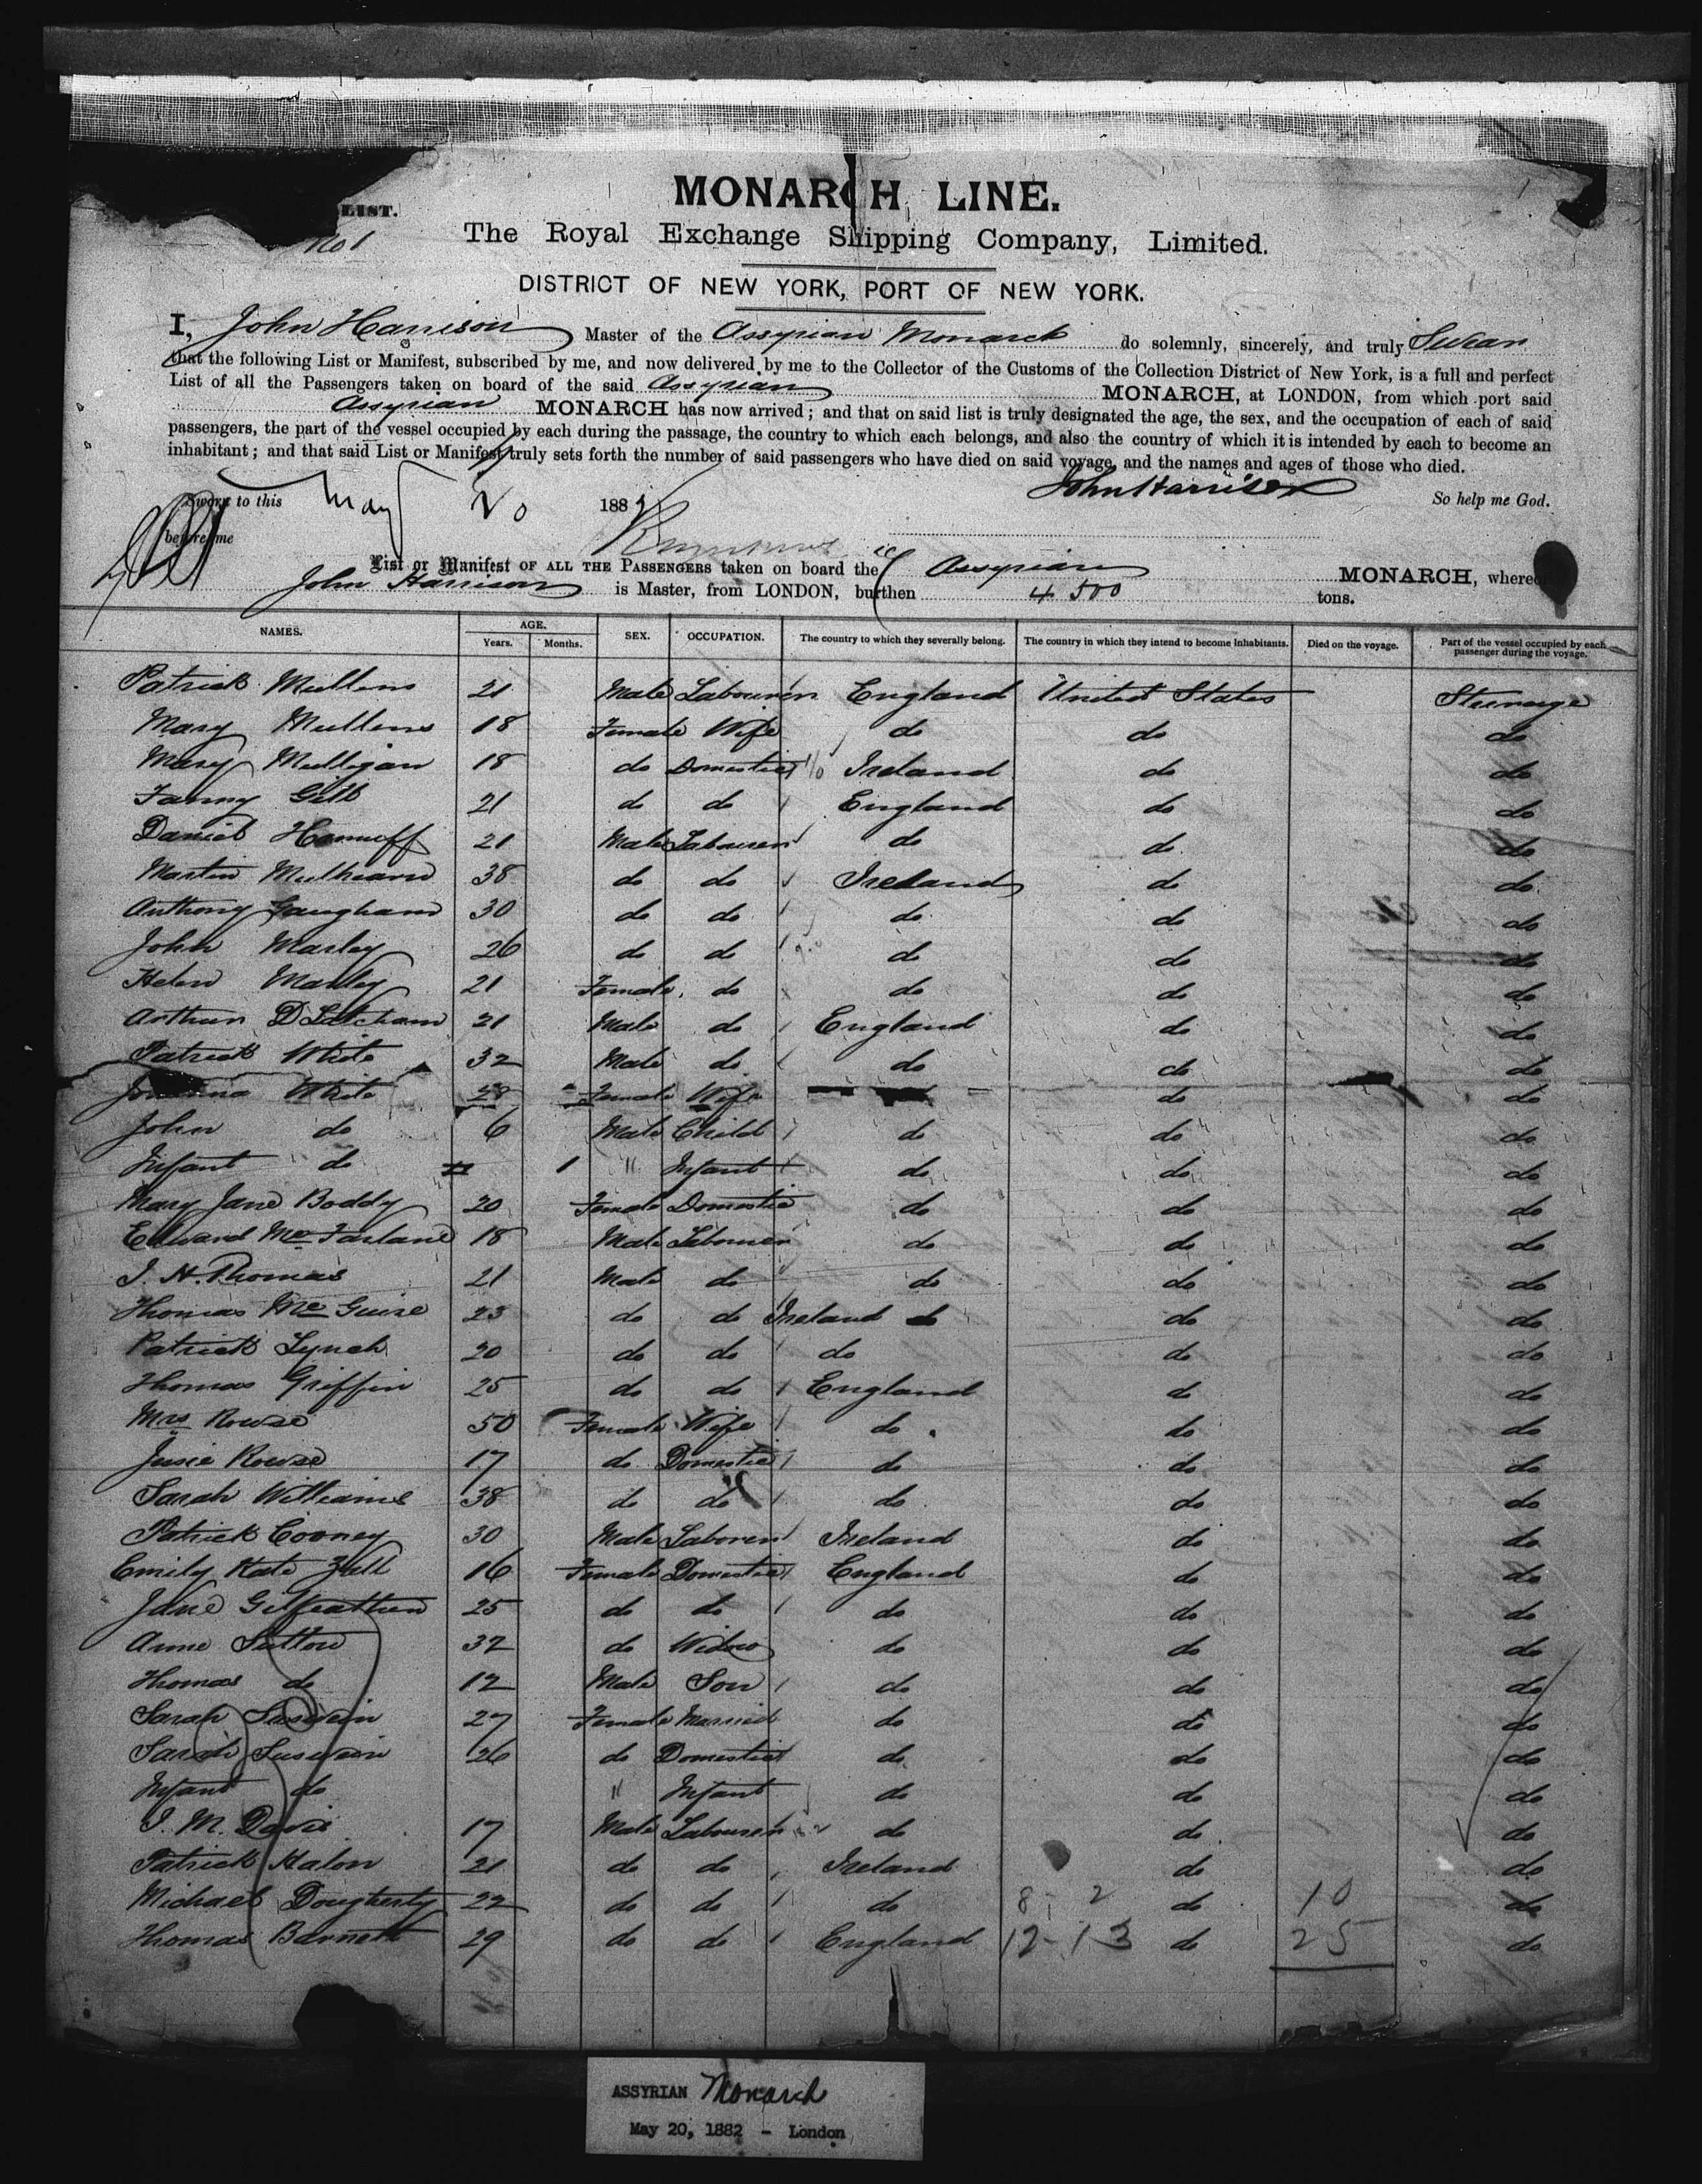 LIST.
No 1
MONARCH LINE.
The Royal Exchange Shipping Company, Limited.
DISTRICT OF NEW YORK, PORT OF NEW YORK.
I, John Harrison Master of the Assyrian Monarch do solemnly, sincerely, and truly Swear
that the following List or Manifest, subscribed by me, and now delivered by me to the Collector of the Customs of the Collection District of New York, is a full and perfect
List of all the Passengers taken on board of the said Assyrian MONARCH, at LONDON, from which port said
Assyrian MONARCH has now arrived; and that on said list is truly designated the age, the sex, and the occupation of each of said
passengers, the part of the vessel occupied by each during the passage, the country to which each belongs, and also the country of which it is intended by each to become an
inhabitant; and that said List or Manifest truly sets forth the number of said passengers who have died on said voyage, and the names and ages of those who died.
John Harrison So help me God.
Sworn to this May 20 1882
before me
List or Manifest OF ALL THE PASSENGERS taken on board the Assyrian MONARCH, whereof
John Harrison is Master, from LONDON, burthen 4500 tons.
NAMES. AGE. Years. Months. SEX. OCCUPATION. The country to which they severally belong. The country in which they intend to become Inhabitants. Died on the voyage. Part of the vessel occupied by each passenger during the voyage.
Patrick Mullens 21 Male Labourer England United States Steerage
Mary Mullens 18 Female Wife do do do
Mary Mulligan 18 do Domestic Ireland do do
Fanny Gill 21 do do England do do
Daniel 21 Male Labourer do do do
Martin 38 do do Ireland do do
Anthony Gaughan 30 do do do do do
John Marley 26 do do do do do
Helen Marley 21 Female do do do do
Arthur 21 Male do England do do
Patrick White 32 Male do do do do
Johanna White 28 Female Wife do do
John do 6 Male Child do do do
Infant do 1 " Infant do do do
Mary Jane Boddy 20 Female Domestic do do do
Edward McFarland 18 Male Labourer do do do
J. H. Thomas 21 Male do do do do
Thomas McGuire 23 do do Ireland do do
Patrick Lynch 20 do do do do do
Thomas Griffin 25 do do England do do
Mrs Rowse 50 Female Wife do do do
Rowse 17 do Domestic do do do
Sarah Williams 38 do do do do do
Patrick Cooney 30 Male Laborer Ireland do do
Emily Kate 16 Female Domestic England do do
Jane Gilfeather 25 do do do do do
Anne Sutton 32 do Widow do do do
Thomas do 12 Male Son do do do
Sarah 27 Female Married do do do
Sarah 26 do Domestic do do do
Infant do " Infant do do do
J. M. Davis 17 Male Labourer do do do
Patrick 21 do do Ireland do do
Michael Dougherty 22 do do do 8 - 2 do 10 do
Thomas Barnett 29 do do England 12 - 13 do 25 do
ASSYRIAN Monarch
May 20, 1882 - London